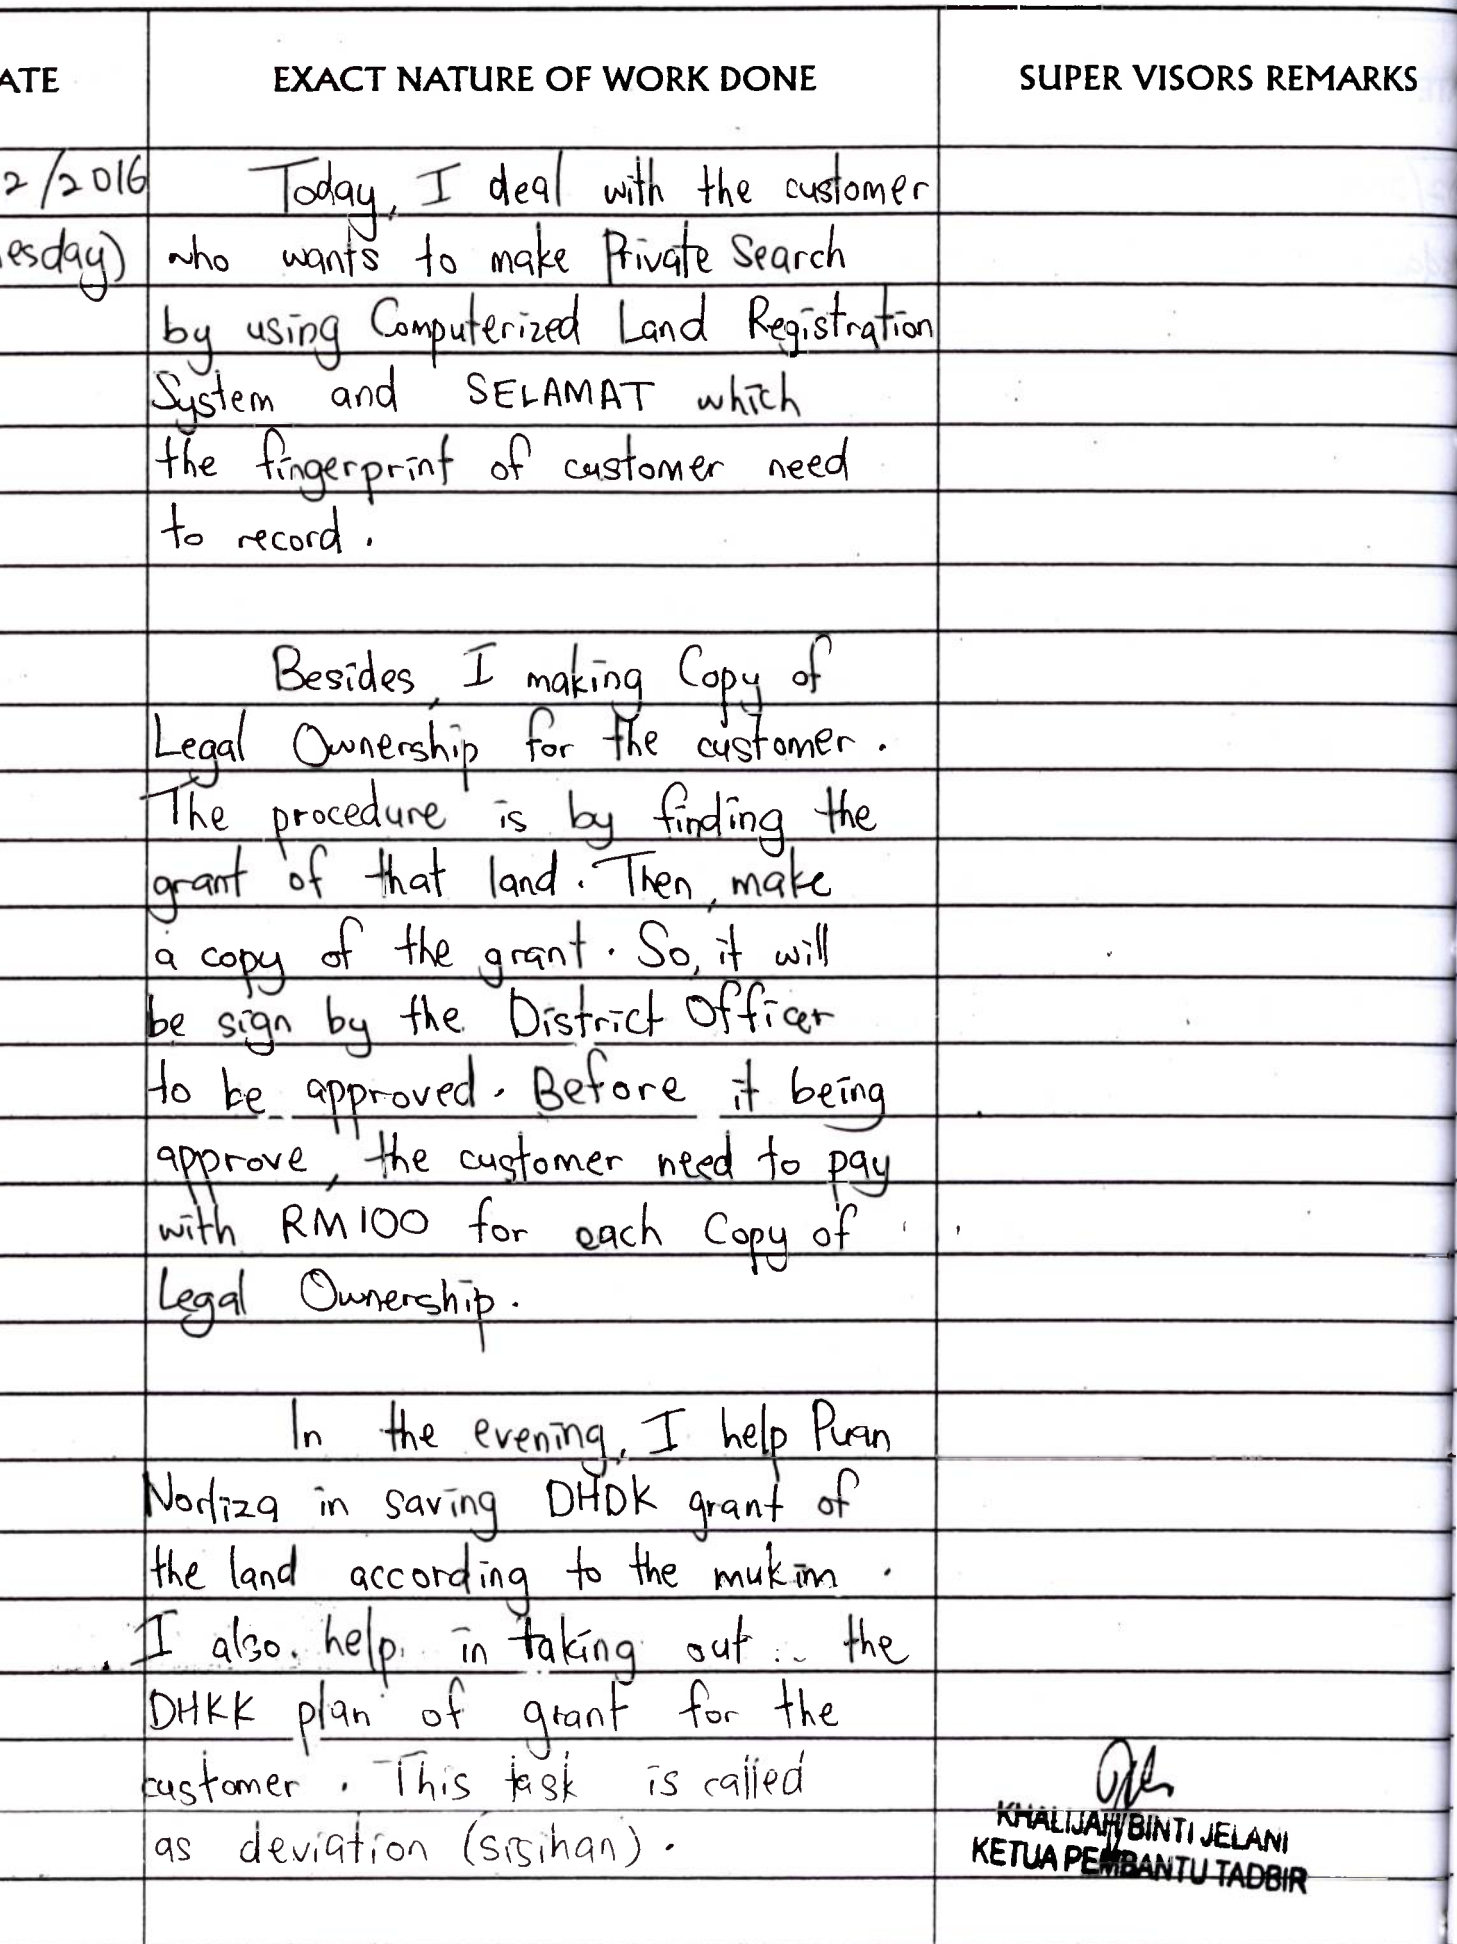 ATE EXACT NATURE OF WORK DONE SUPER VISORS REMARKS
2/2016 Today, I deal with the customer
esday) who wants to make Private Search
by using Computerized Land Registration
System and SELAMAT which
the fingerprint of customer need
to record.
Besides, I making Copy of
Legal Ownership for the customer.
The procedure is by finding the
grant of that land. Then, make
a copy of the grant. So, it will
be sign by the District Officer
to be approved. Before it being
approve, the customer need to pay
with RM100 for each Copy of
Legal Ownership.
In the evening, I help Puan
Norliza in saving DHDK grant of
the land according to the mukim.
I also help in taking out the
DHKK plan of grant for the
customer. This task is called
as deviation (sisihan).
KHALIJAH BINTI JELANI
KETUA PEMBANTU TADBIR